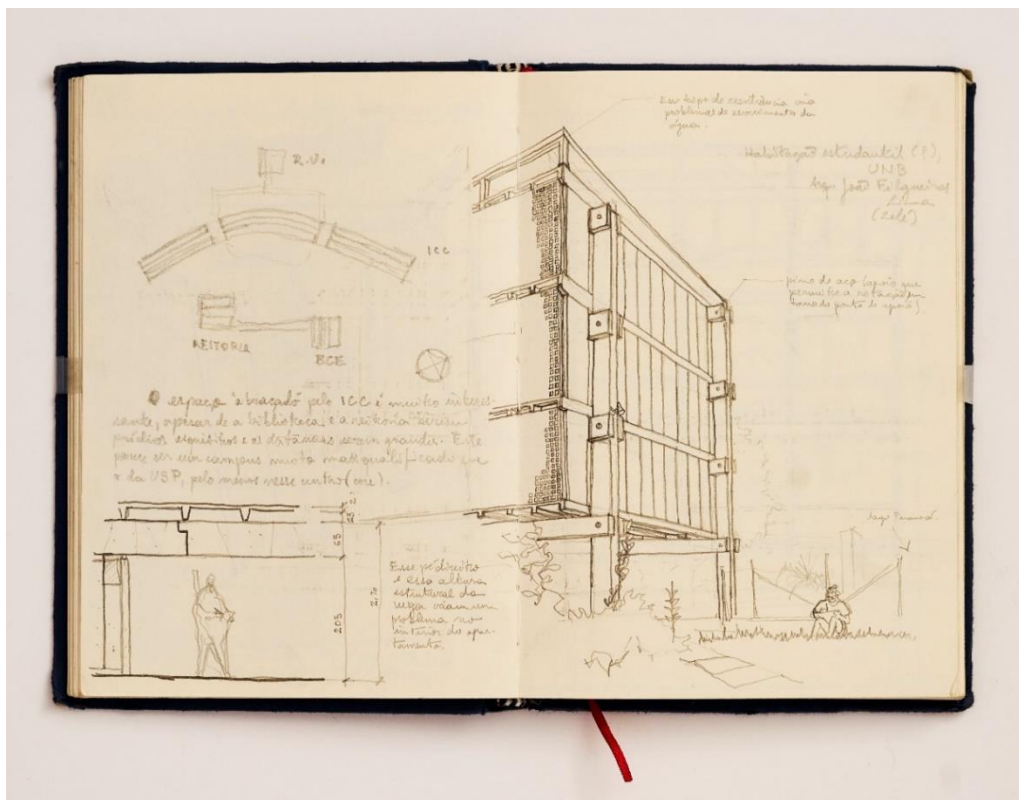 R.U.
ICC
REITORIA
BCE
O espaço "abraçado" pelo ICC é muito interes-
sante, apesar de a biblioteca e a reitoria serem
prédios esquisitos e as distâncias serem grandes. Este
parece ser um campus muito mais qualificado que
o da USP, pelo menos nesse centro (core).
65
205
Esse pé direito
e essa altura
estrutural da
viga criam um
problema no
interior do apar-
tamento.
Esse tipo de resistência cria
problemas de escorrimento da
água.
Habitação estudantil (?),
UNB
Arq. João Filgueiras
Lima
(Lelé)
pino de aço (apoio que
permite a rotação em
torno do ponto de apoio).
Lago Paranoá.